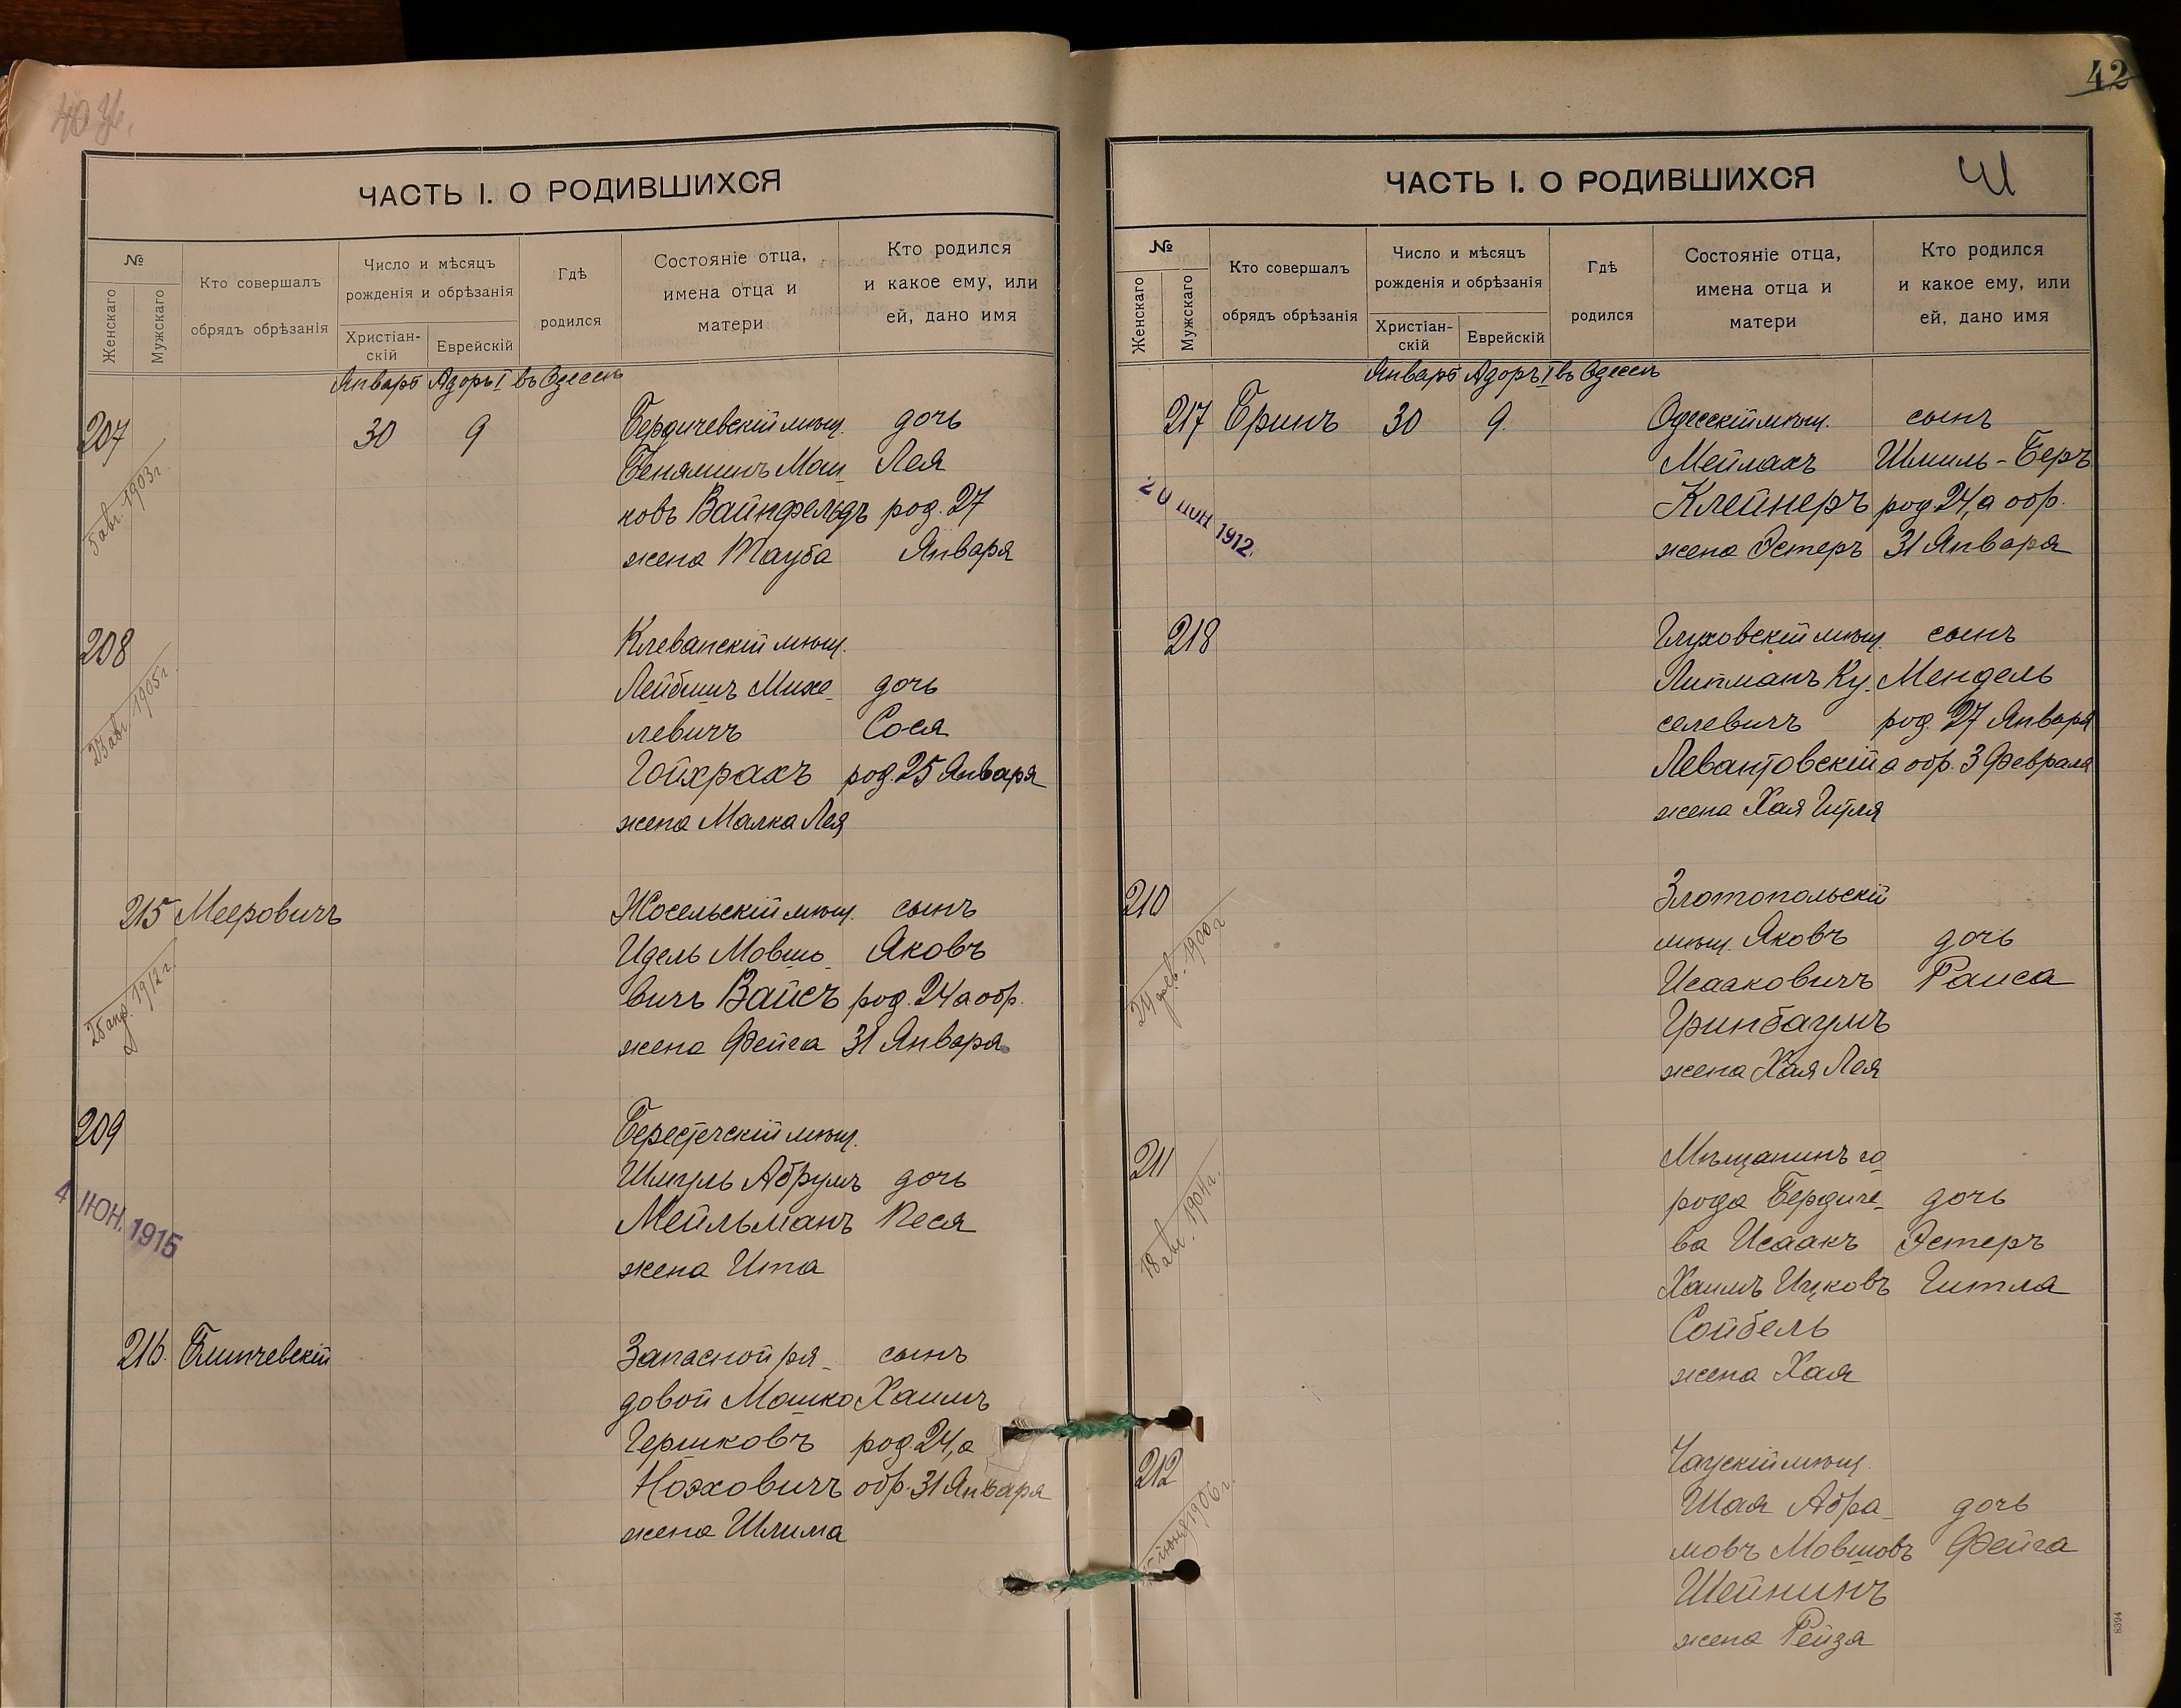 42
ЧАСТЬ I. О РОДИВШИХСЯ
№
Женскаго
Мужскаго
Кто совершалъ
обрядъ обрѣзанія
Число и мѣсяцъ
рожденія и обрѣзанія
Христіан-
скій
Еврейскій
Гдѣ
родился
Состояніе отца,
имена отца и
матери
Кто родился
и какое ему, или
ей, дано имя
Январь Адаръ I въ Одессѣ
207 30 9 Бердичевскій мѣщ. дочь
Беняминъ Мош- Лея
ковъ Вайнфельдъ род. 27
жена Тауба Января
5 авг. 1903 г.
208 Клеванскій мѣщ.
Лейбишъ Михе- дочь
левичъ Сося
Гойхрахъ род. 25 Января
жена Малка Лея
23 авг. 1905 г.
215 Мееровичъ сынъ
Идель Мовшо- Яковъ
вичъ Вайсъ род. 24 а обр.
жена Фейга 31 Января
25 апр. 1912 г.
209 Берестечскій мѣщ.
Шмуль Абрумъ дочь
Мейльманъ Песя
жена Ита
4 ІЮН. 1915
216. Запасной ря- сынъ
довой Мошко Хаимъ
Гершковъ род. 24, а
Ноэховичъ обр. 31 Января
жена Шлима
ЧАСТЬ I. О РОДИВШИХСЯ
41
№
Женскаго
Мужскаго
Кто совершалъ
обрядъ обрѣзанія
Число и мѣсяцъ
рожденія и обрѣзанія
Христіан-
скій
Еврейскій
Гдѣ
родился
Состояніе отца,
имена отца и
матери
Кто родился
и какое ему, или
ей, дано имя
Январь Адаръ I въ Одессѣ
217 Бринъ 30 9. Одесскій мѣщ. сынъ
Мейлахъ Шмиль-Беръ
Клейнеръ род. 24, а обр.
жена Эстеръ 31 Января
20 ІЮН 1912
218 Глуховскій мѣщ. сынъ
Липманъ Ку- Мендель
селевичъ род. 27 Января
Левантовскій а обр. 3 Февраля
жена Хая Гитля
210 Златопольскій
мѣщ. Яковъ дочь
Исааковичъ Раиса
Гринбаумъ
жена Хая Лея
1900 г
211 Мѣщанинъ го-
рода Бердиче- дочь
ва Исаакъ Эстеръ
Хаимъ Ицковъ Гитля
Сойбель
жена Хая
18 авг. 1904 г.
212 Чаусскій мѣщ.
Шая Абра- дочь
мовъ Мовшовъ Фейга
Шейнинъ
жена Рейза
июня 1906 г.
8394